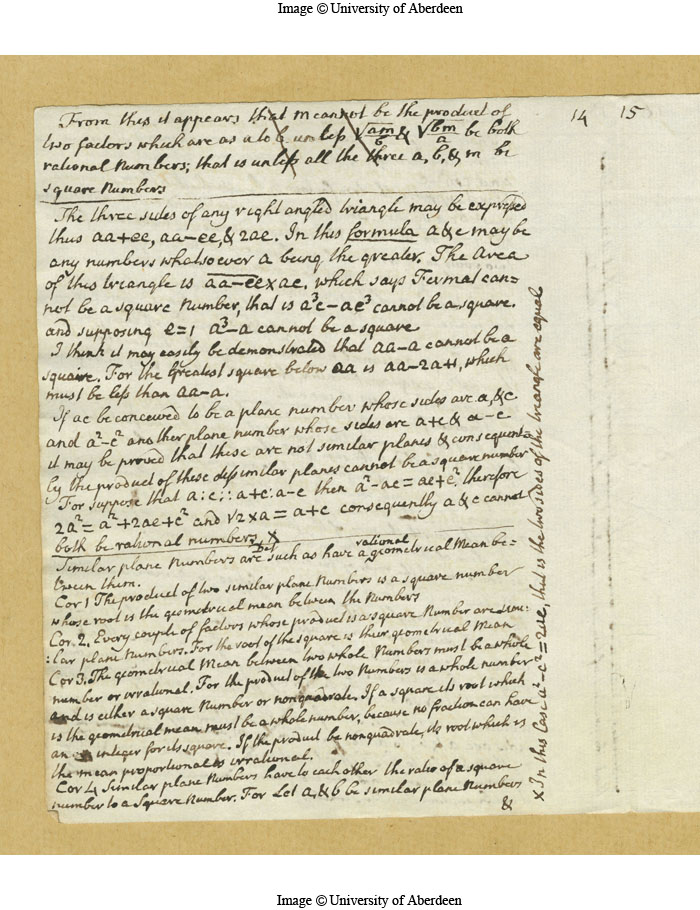 Image © University of Aberdeen
14 15
From this it appears that m cannot be the product of
two factors which are as a to b unless √am/b & √bm/a be both
rational Numbers; that is unless all the three a, b, & m be
square Numbers
The three sides of any right angled triangle may be expressed
thus aa+ee, aa-ee, & 2ae. In this formula a & e may be
any numbers whatsoever a being the greater. The Area
of this triangle is aa-ee×ae, which says Fermat can=
not be a square Number, that is a³e-ae³ cannot be a square.
and supposing e=1 a³-a cannot be a square
I think it may easily be demonstrated that aa-a cannot be a
square. For the Greatest square below aa is aa-2a+1, which
must be less than aa-a.
If ae be conceived to be a plane number whose sides are a, & e
and a²-e² another plane number whose sides are a+e & a-e
it may be proved that these are not similar planes & consequent=
ly the product of these dissimilar planes cannot be a square number
For suppose that a:e::a+e:a-e then a²-ae=ae+e², therefore
2a²=a²+2ae+e² and √2×a=a+e consequently a & e cannot
both be rational numbers. ×
Def
Similar plane Numbers are such as have a rational geometrical Mean be=
tween them.
Cor 1 The product of two similar plane Numbers is a square number
whose root is the geometrical mean between the Numbers
Cor. 2. Every couple of factors whose product is a square Number are simi:
:lar plane Numbers. For the root of the square is their geometrical Mean
Cor 3. The geometrical Mean between two whole Numbers must be a whole
number or irrational. For the product of the two Numbers is a whole number
and is either a square Number or nonquadrate. If a square its root which
is the geometrical mean must be a whole number, because no fraction can have
an integer for its square. If the product be nonquadrate, its root which is
the mean proportional is irrational.
Cor 4 Similar plane Numbers have to each other the ratio of a square
number to a Square Number. For Let a, & b be similar plane Numbers
&
× In this Case a²-e²=2ae, that is the two sides of the triangle are equal
Image © University of Aberdeen